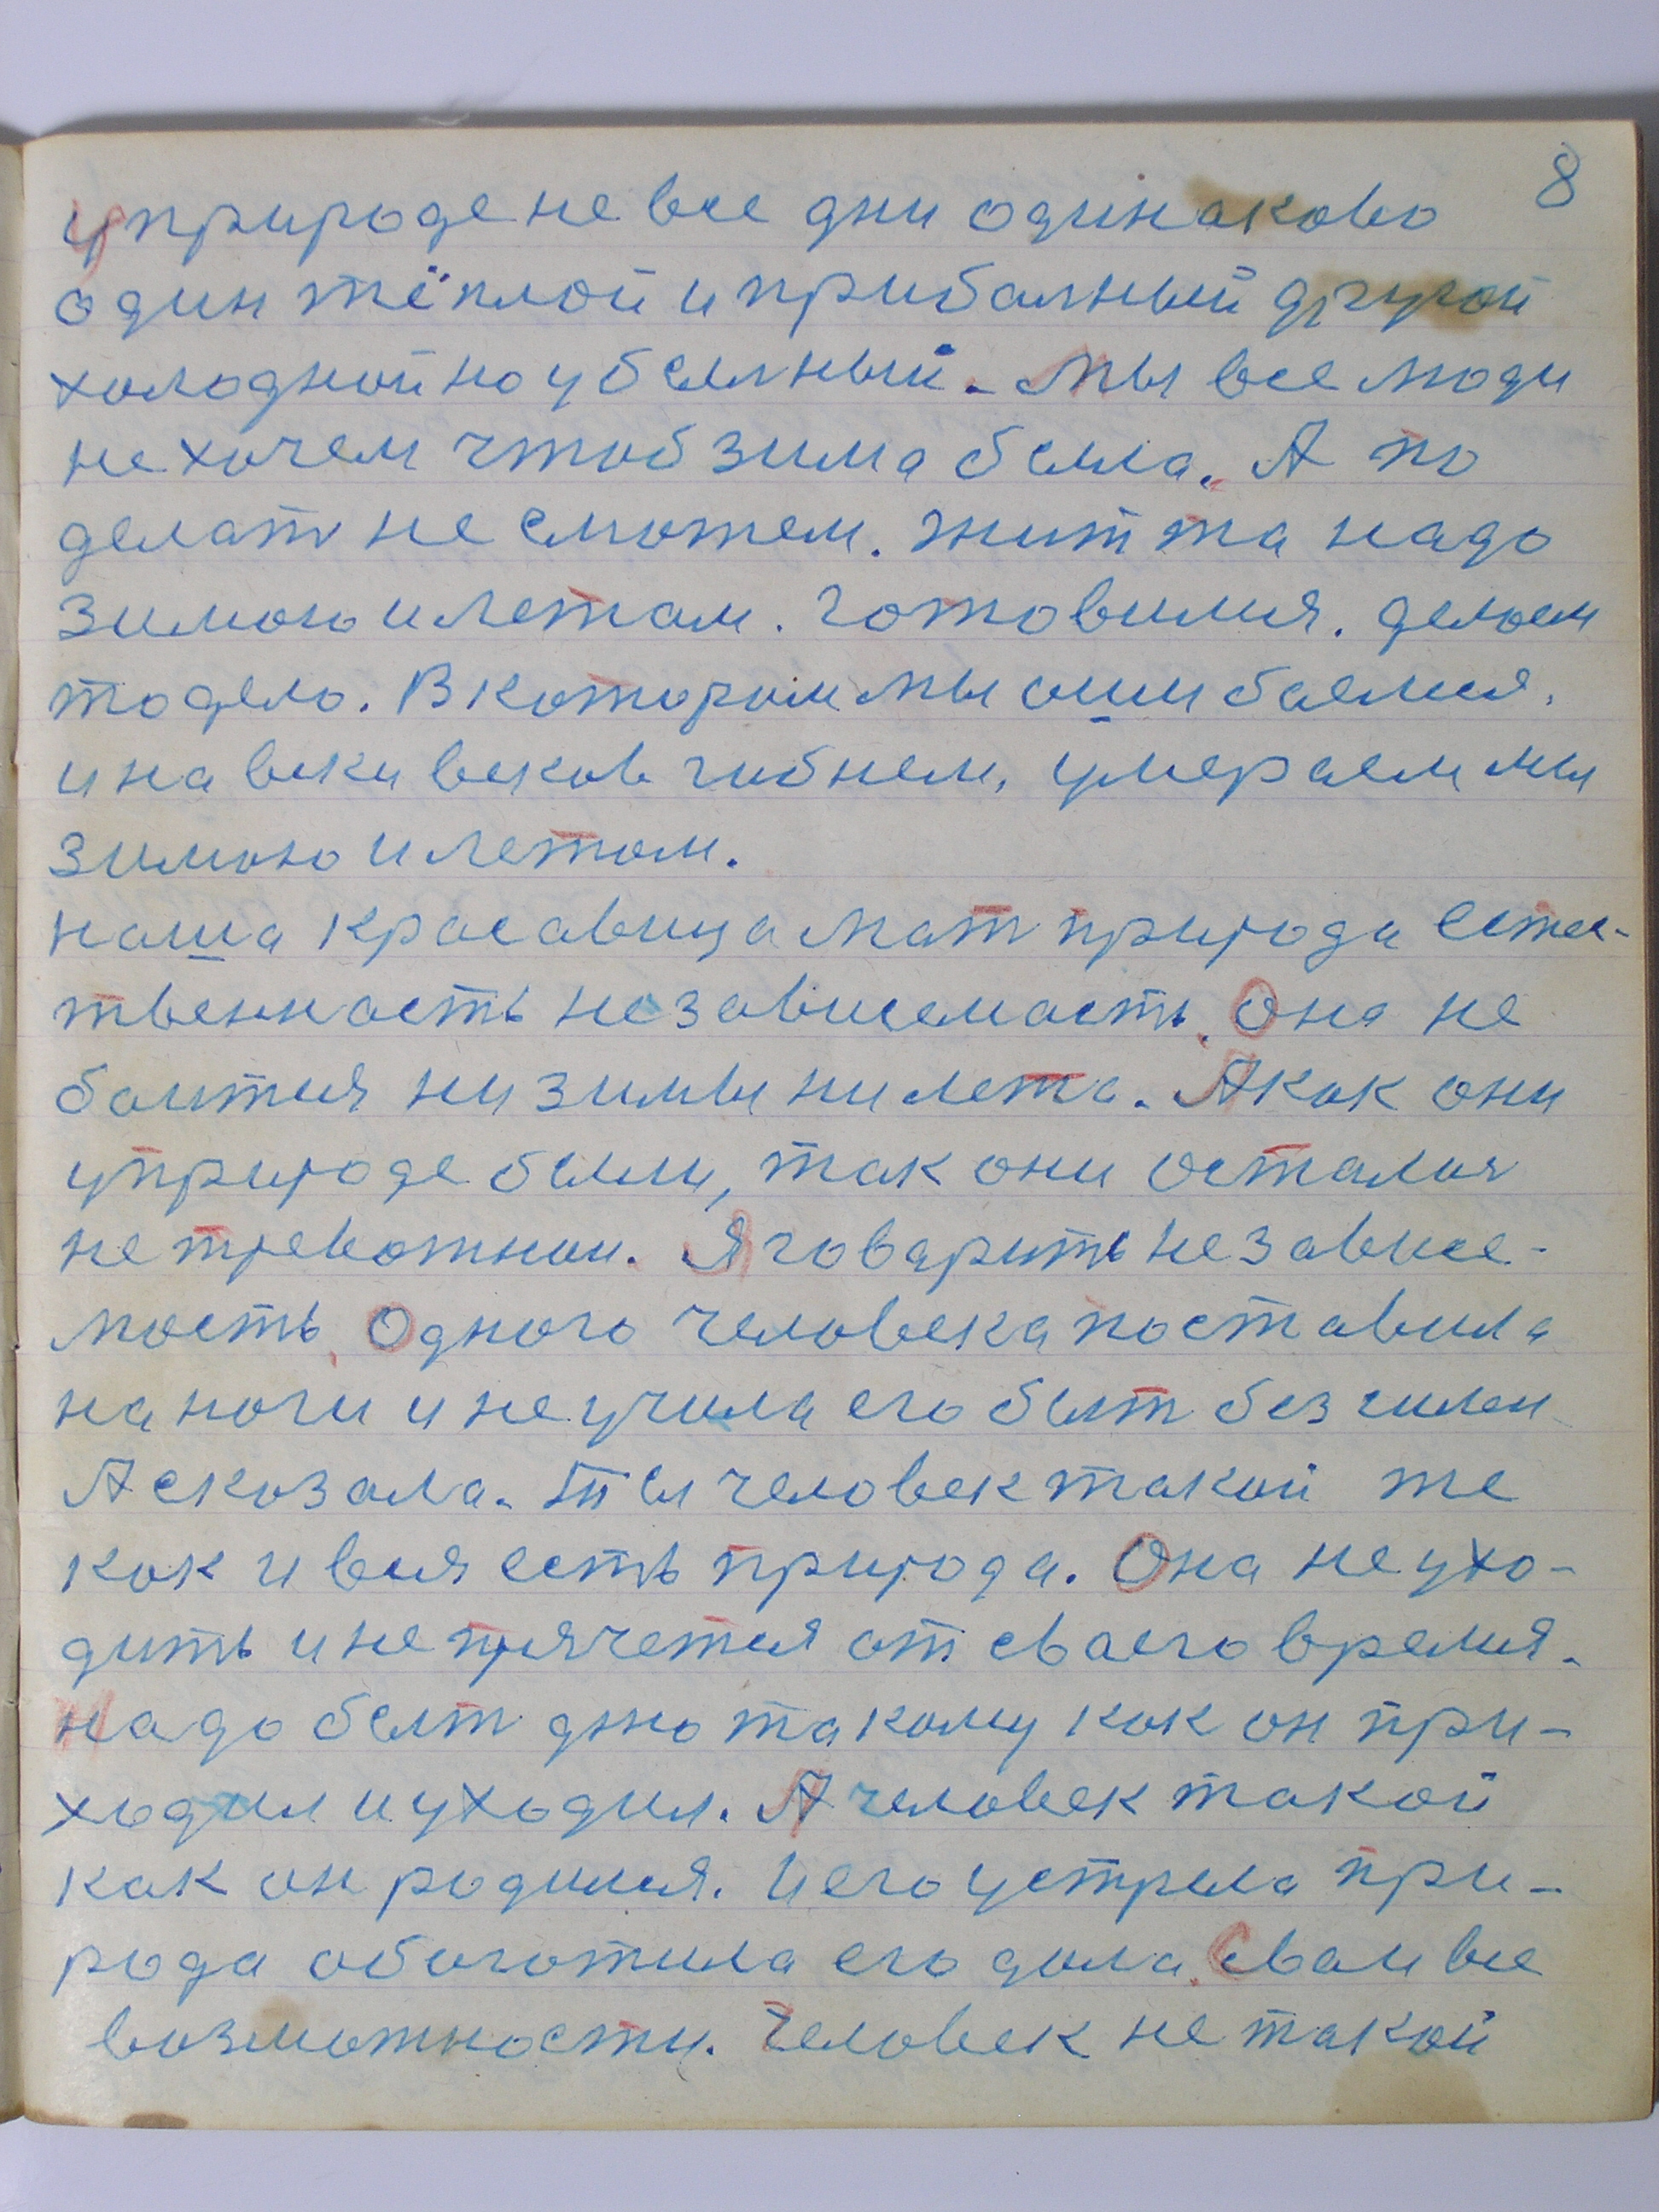 8
у природе не все дни одинаково
один тёплой и прибалный другой
холодной но убылный. Мы все люди
не хочем чтоб зима была. А по
делать не сможем. Жит та надо
зимою и летам. Готовимся. делаем
то дело. В котором мы ошибаемся.
и на веки веков гибнем, умераем мы
зимою и летом.
наша красавица мать природа естес-
твенность независемасть. Она не
боится ни зимы ни лета. А как они
у природе были, так они осталися
не тревожнои. Я говарить независе-
мость. Одного человека поставила
на ноги и не учила его быть без силы
А сказала. Ты человек такой же
как и вся есть природа. Она не ухо-
дить и не прячется от сваего время.
надо быть дню такому как он при-
ходил и уходил. А человек такой
как он родился. И его устрела при-
рода обогатила его дала. Сваи все
возможности. Человек не такой